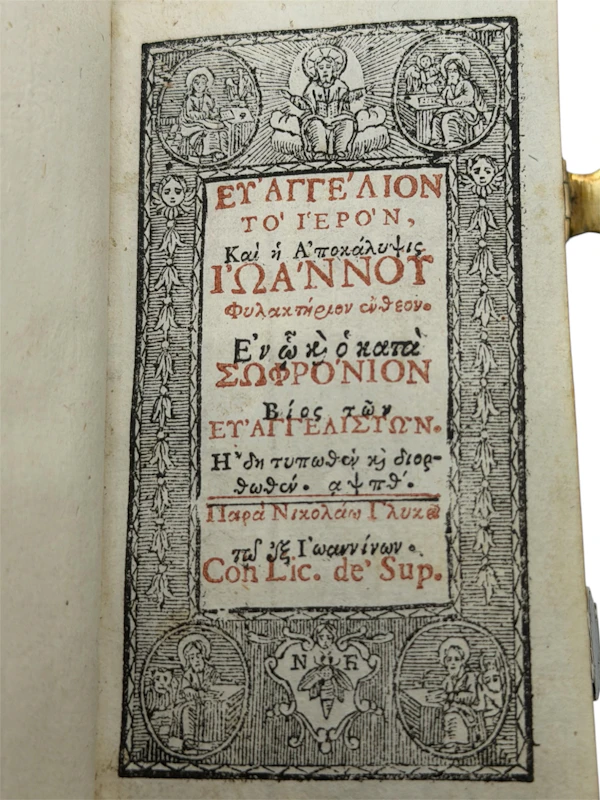 ΕΥ̓ΑΓΓΈΛΙΟΝ
ΤῸ ἹΕΡῸΝ,
Καὶ ἡ Ἀποκάλυψις
ἸΩΆΝΝΟΥ
Φυλακτήριον ἔνθεον.
Ἐν ᾧ ϗ ὁ κατὰ
ΣΩΦΡΌΝΙΟΝ
Βίος τῶν
ΕΥ̓ΑΓΓΕΛΙΣΤΩ͂Ν.
Ἤδη τυπωθὲν ϗ διορ-
θωθέν. αψπθʹ.
Παρὰ Νικολάῳ Γλυκεῖ
τῷ ἐξ Ἰωαννίνων.
Con Lic. de' Sup.
Ν Γ